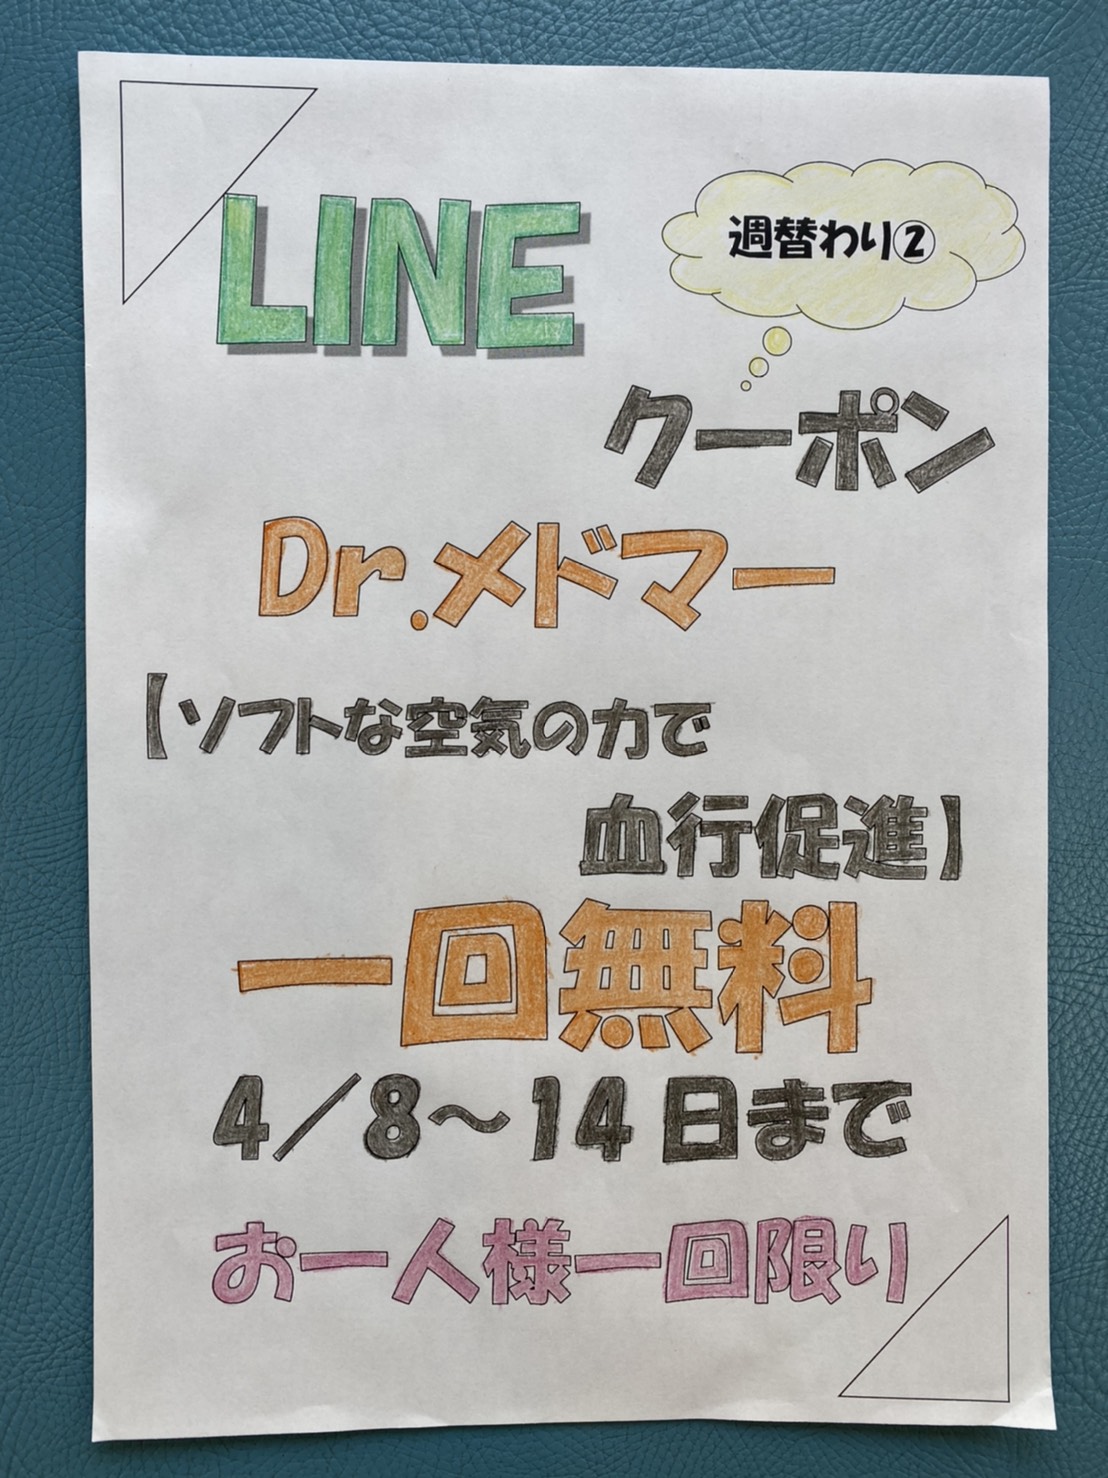 LINE
週替わり②
クーポン
Dr.メドマー
【ソフトな空気の力で
血行促進】
一回無料
4/8～14日まで
お一人様一回限り